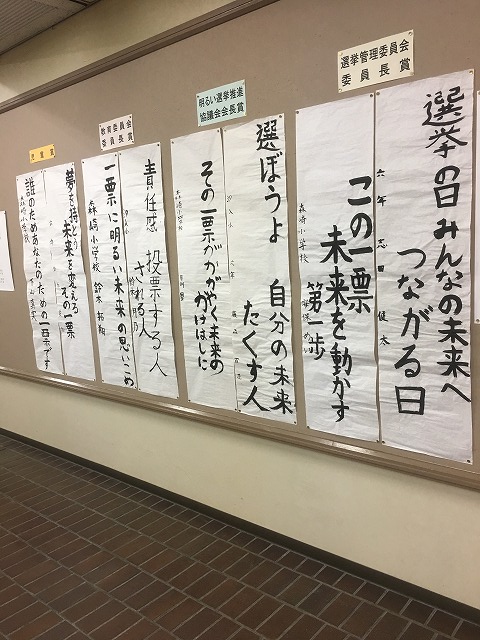 選挙管理委員会
委員長賞
選挙の日 みんなの未来へ
つながる日
六年 志田 健太
この一票
未来を動かす
第一歩
森崎小学校
明るい選挙推進
協議会会長賞
選ぼうよ 自分の未来
たくす人
その一票がかがやく未来の
かけはしに
森崎小学校
教育委員会
委員長賞
責任感 投票する人
される人
一票に明るい未来の思いこめ
森崎小学校 鈴木
児童賞
夢を持とう
未来を変える
その一票
誰のためあなたのための一票です
森崎小学校